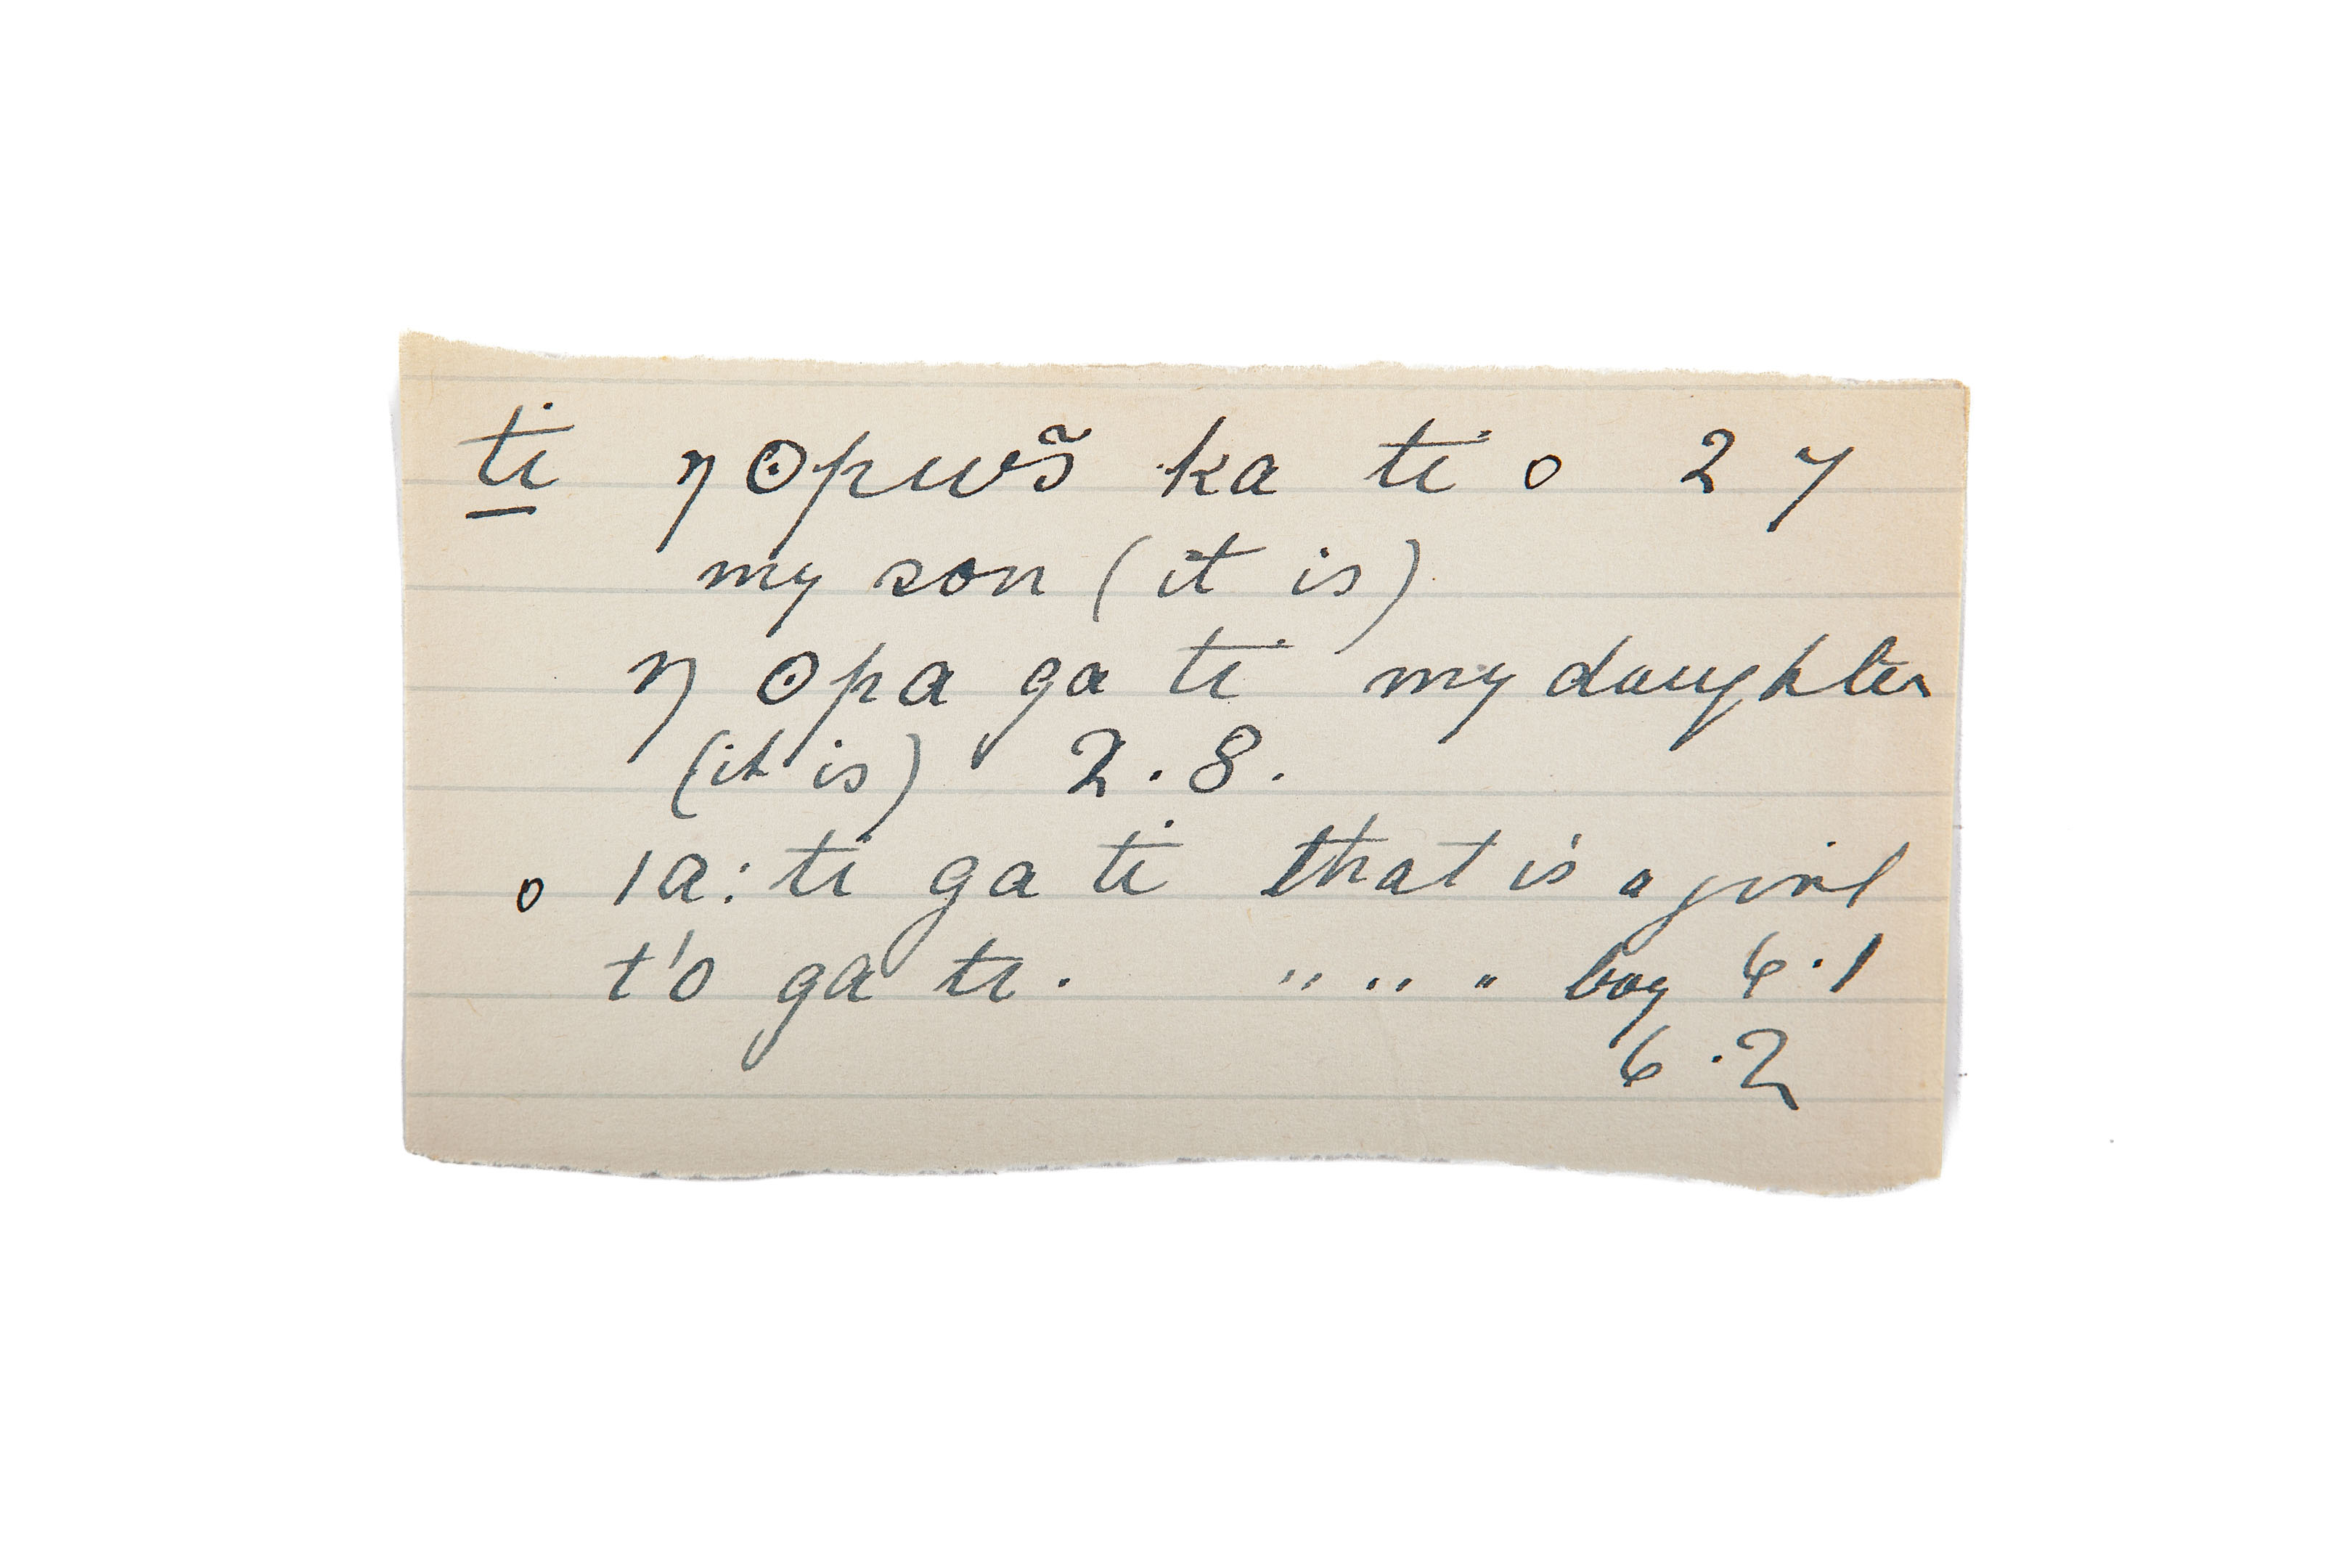 ti ŋʘpwɔ̃ ka ti o 2 7
my son (it is)
ŋ ʘpa ga ti my daughter
(it is) 2.8.
o ıa: ti ga ti that is a girl
t'o ga ti. " " " boy 6.1
6.2